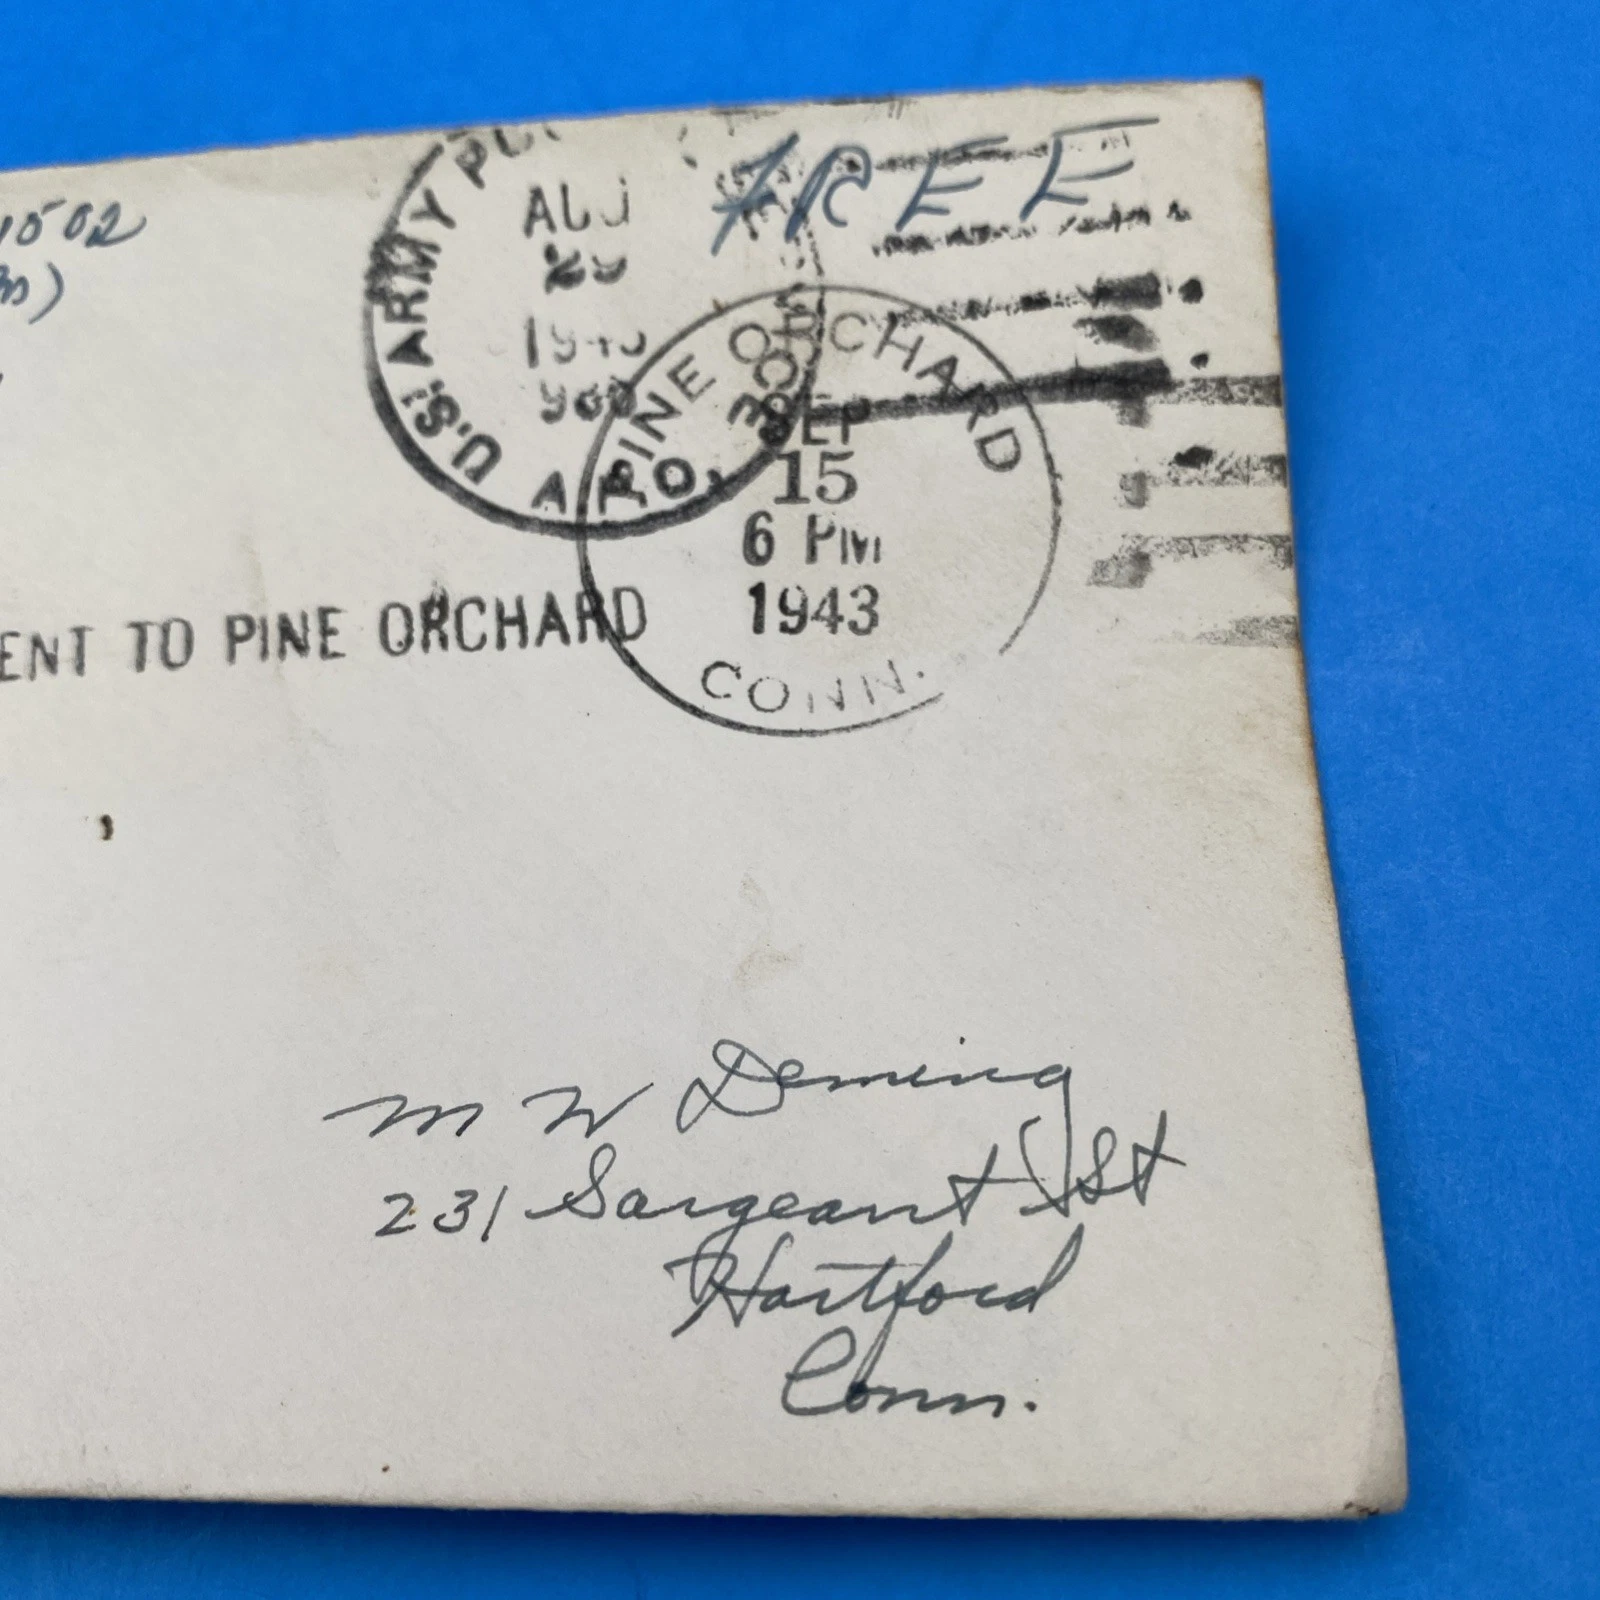 1502
FREE
U.S. ARMY
A.P.O.
AUG
29
1943
PINE ORCHARD
SEP
15
6 PM
1943
CONN.
ENT TO PINE ORCHARD
M W Deming
231 Sargeant St
Hartford
Conn.